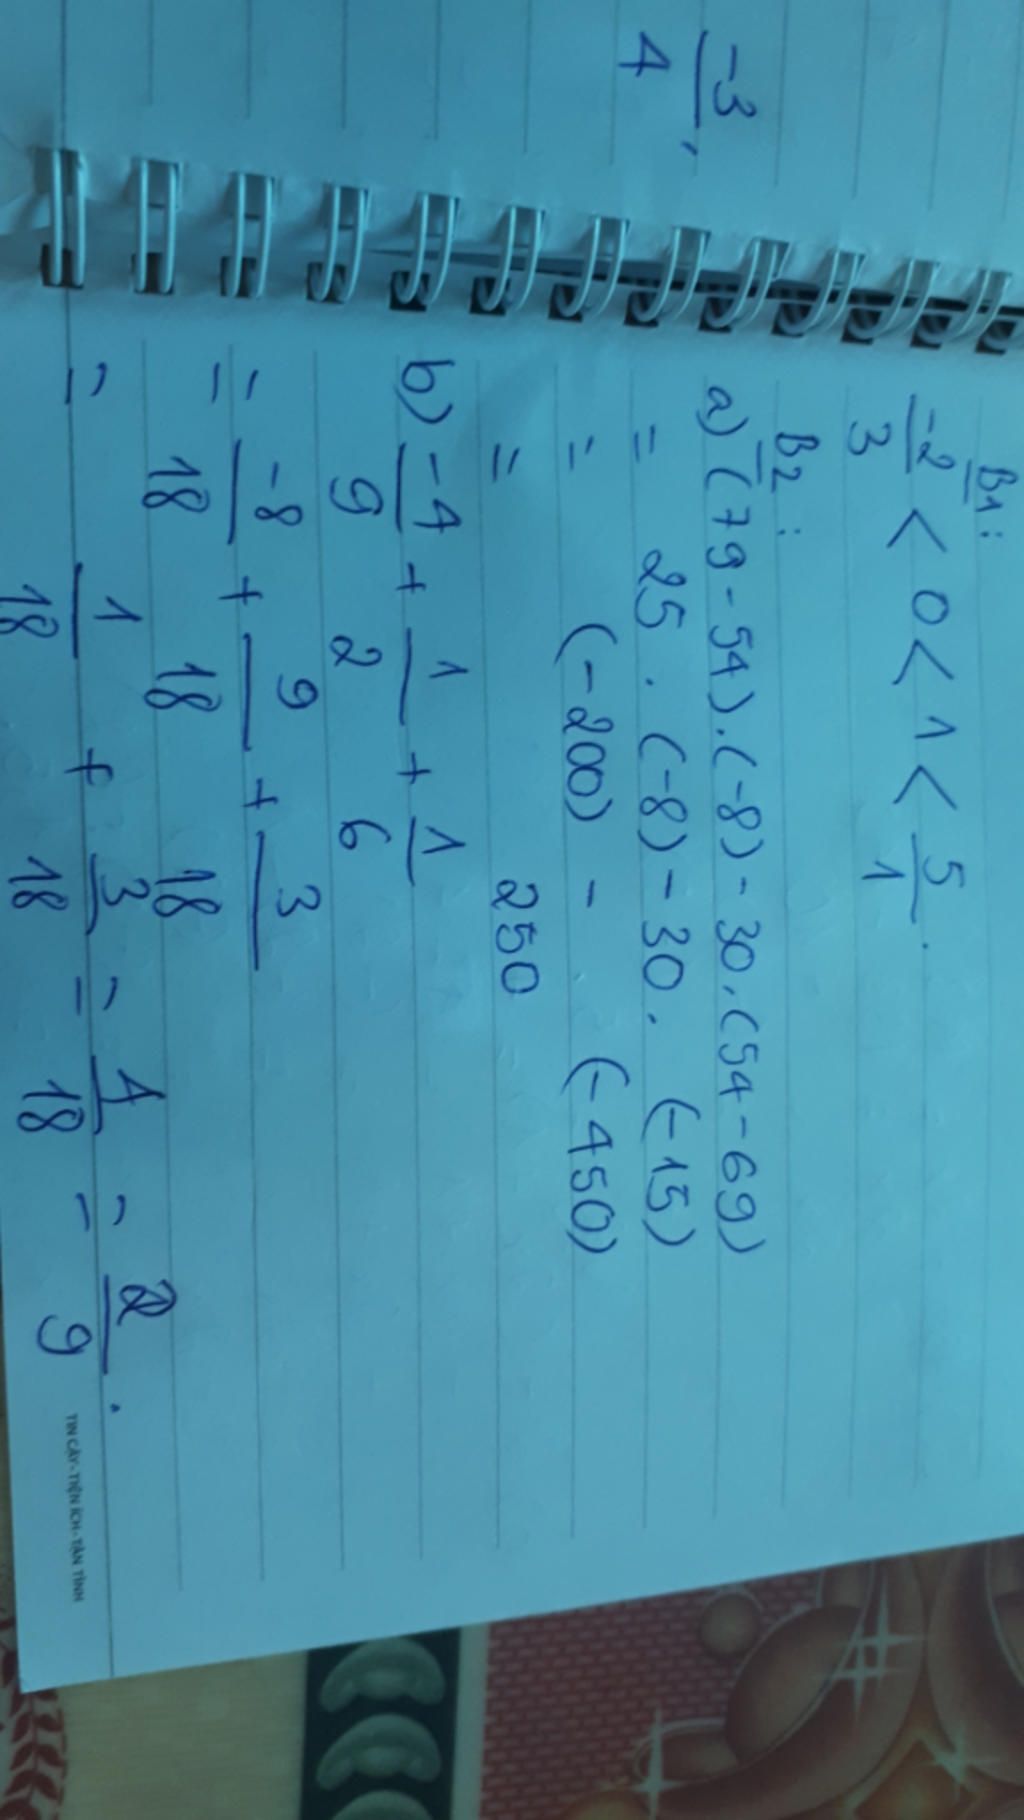 -3/4,
B1:
-2/3 < 0 < 1 < 5/1.
B2:
a) (79 - 54).(-8) - 30.(54 - 69)
= 25 . (-8) - 30. (-15)
= (-200) - (-450)
= 250
b) -4/9 + 1/2 + 1/6
= -8/18 + 9/18 + 3/18
= 1/18 + 3/18 = 4/18 = 2/9.
TIN CẬY - TIỆN ÍCH - TẬN TÌNH